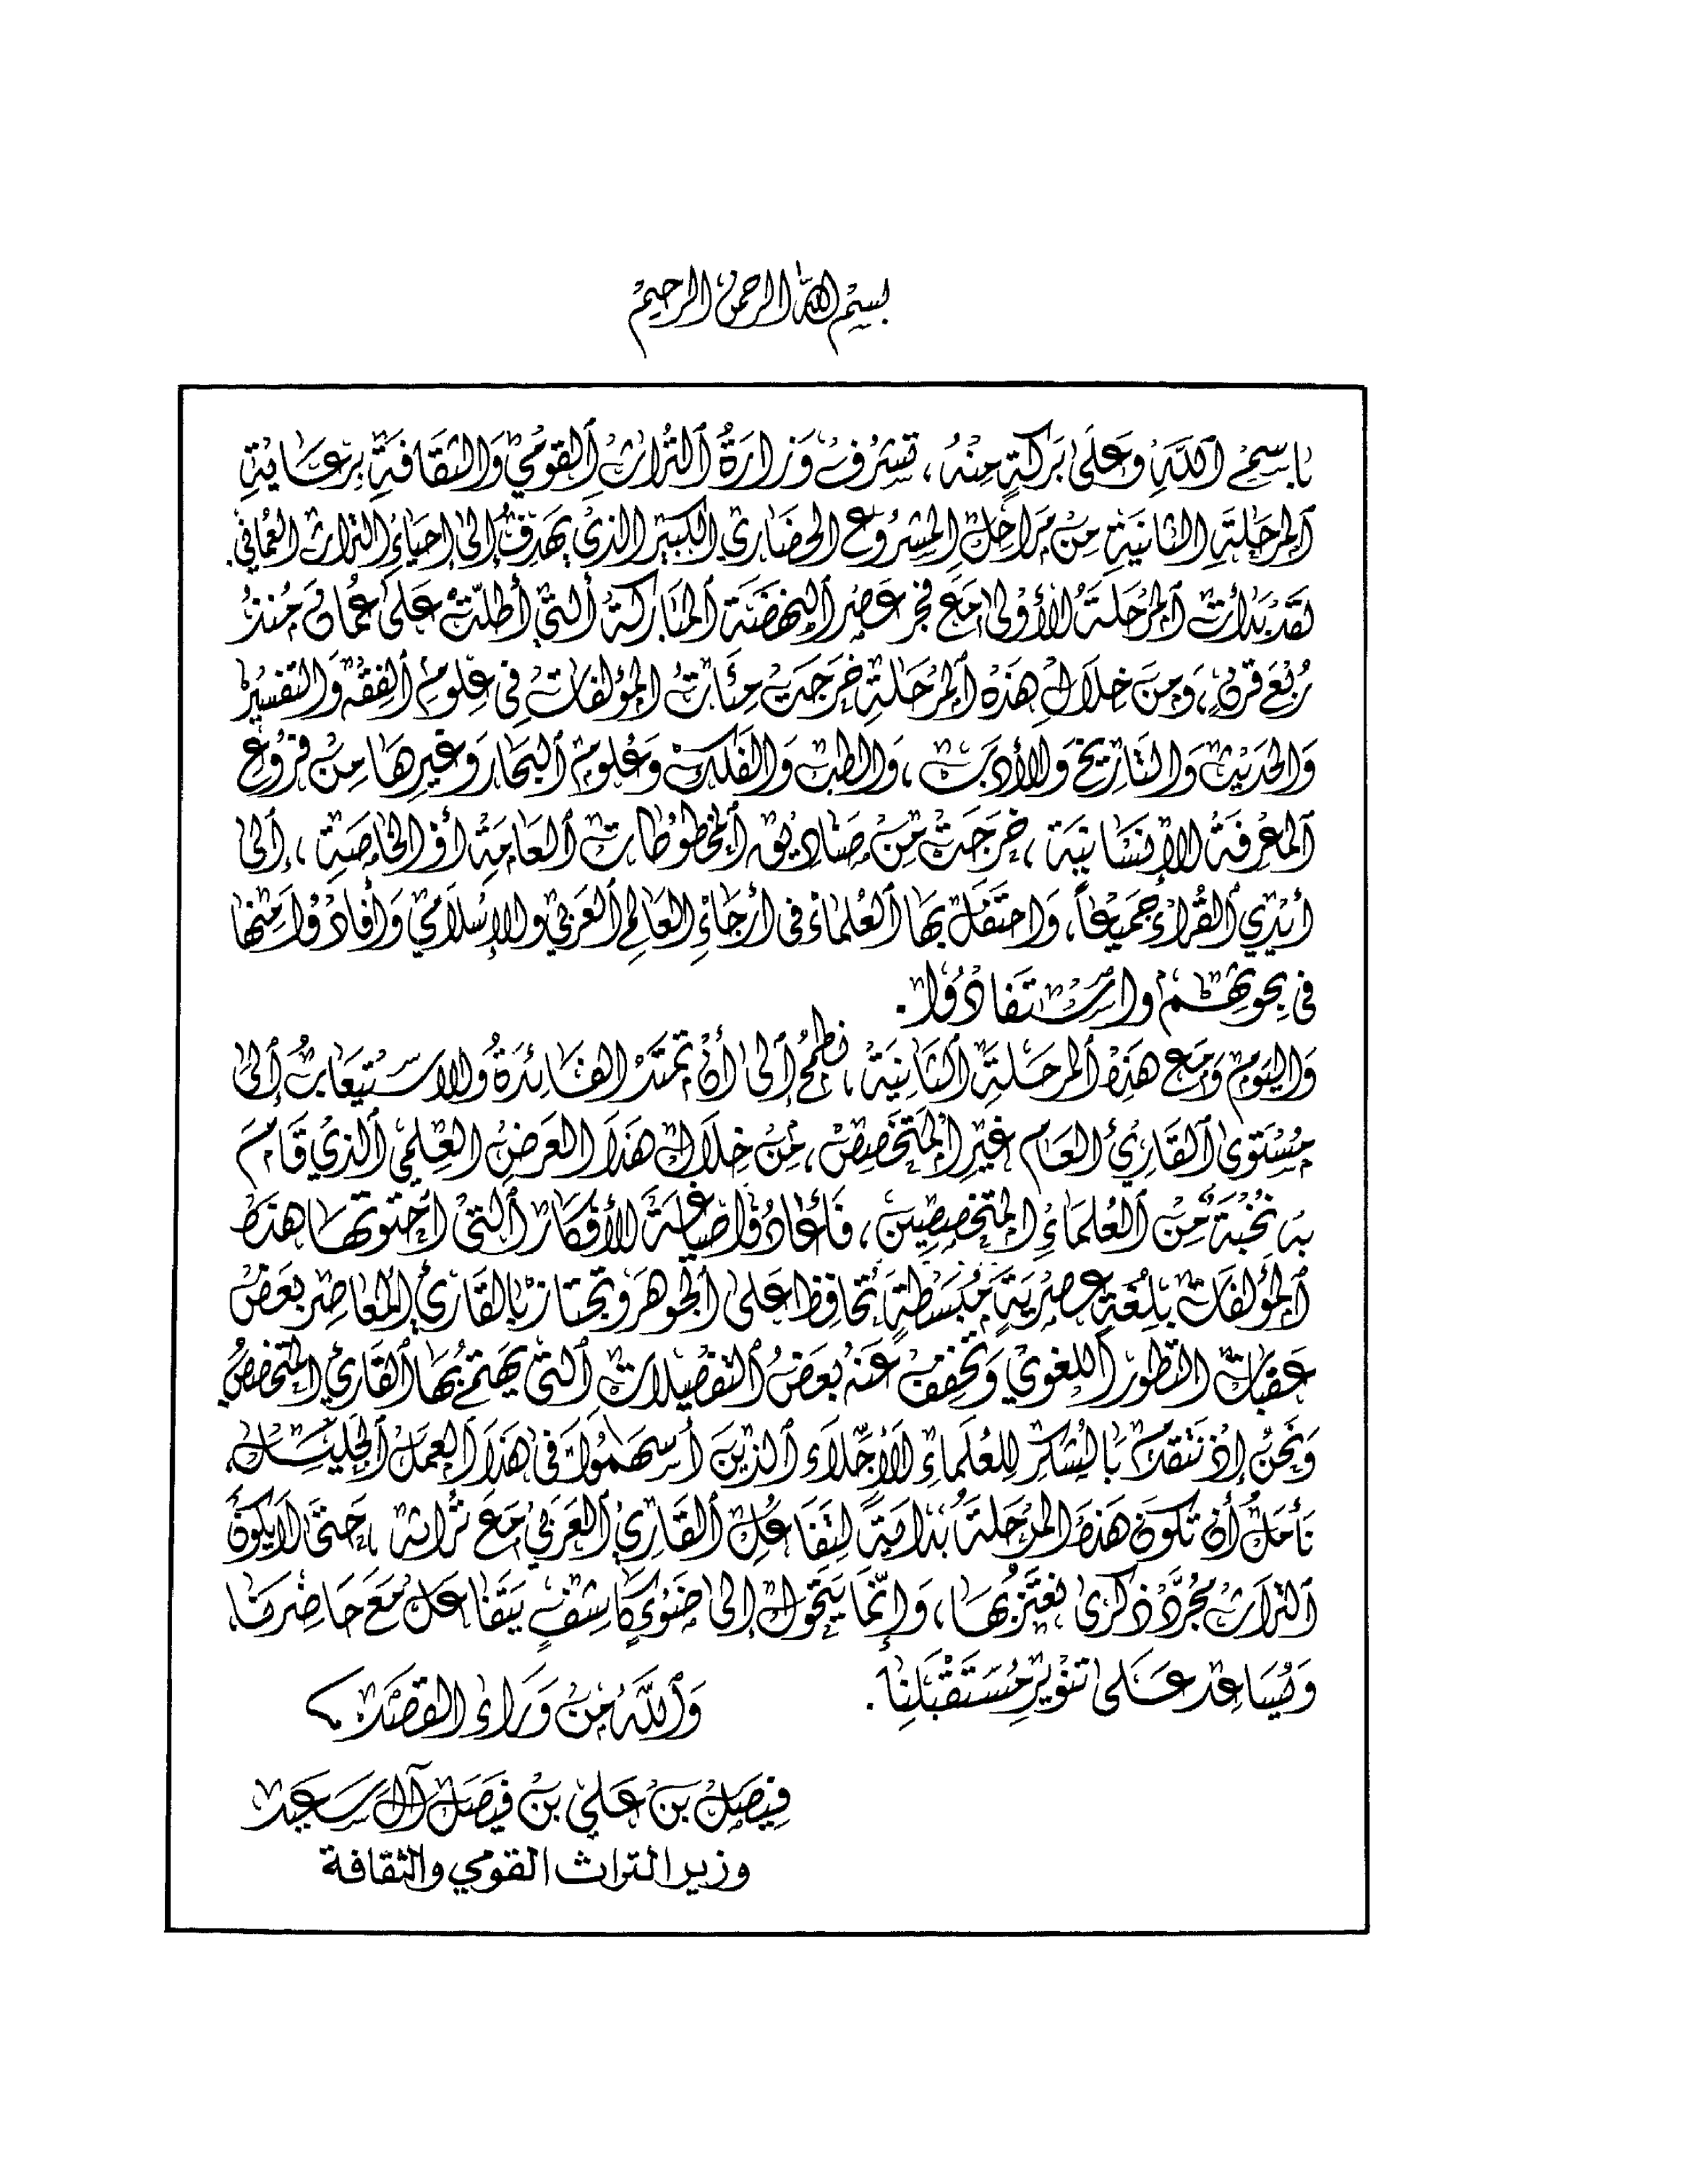 بسم الله الرحمن الرحيم
باسم الله وعلى بركة منه، تشرف وزارة التراث القومي والثقافة برعاية
المرحلة الثانية من مراحل المشروع الحضاري الكبير الذي يهدف إلى إحياء التراث العماني.
لقد بدأت المرحلة الأولى مع فجر عصر النهضة المباركة التي أطلت على عمان منذ
ربع قرن، ومن خلال هذه المرحلة خرجت مئات المؤلفات في علوم الفقه والتفسير
والحديث والتاريخ والأدب، والطب والفلك وعلوم البحار وغيرها من فروع
المعرفة الإنسانية، خرجت من صناديق المخطوطات العامة أو الخاصة، إلى
أيدي القراء جميعاً، واحتفل بها العلماء في أرجاء العالم العربي والإسلامي وأفادوا منها
في بحوثهم واستفادوا.
واليوم ومع هذه المرحلة الثانية، نطمح إلى أن تمتد الفائدة والاستيعاب إلى
مستوى القارئ العام غير المتخصص، من خلال هذا العرض العلمي الذي قام
به نخبة من العلماء المتخصصين، فأعادوا صياغة الأفكار التي احتوتها هذه
المؤلفات بلغة عصرية مبسطة تحافظ على الجوهر وتجتاز بالقارئ المعاصر بعض
عقبات التطور اللغوي وتخفف عنه بعض التفصيلات التي يهتم بها القارئ المتخصص
ونحن إذ نتقدم بالشكر للعلماء الأجلاء الذين أسهموا في هذا العمل الجليل،
نأمل أن تكون هذه المرحلة بداية لتفاعل القارئ العربي مع تراثه، حتى لا يكون
التراث مجرد ذكرى نعتز بها، وإنما يتحول إلى ضوء كاشف يتفاعل مع حاضرنا،
ويساعد على تنوير مستقبلنا.
والله من وراء القصد
فيصل بن علي بن فيصل آل سعيد
وزير التراث القومي والثقافة